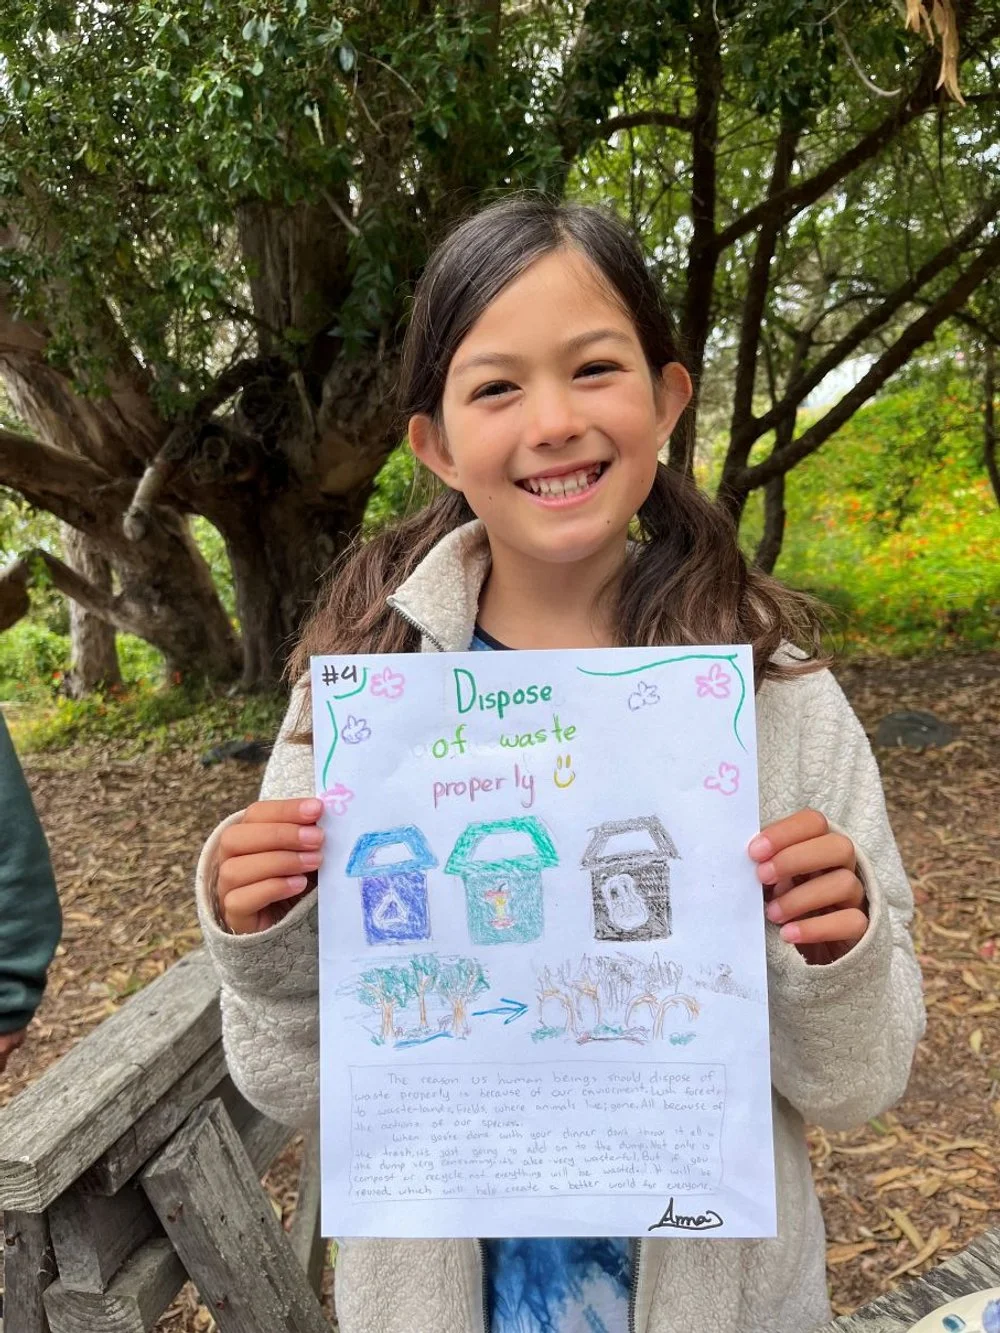 #4
Dispose
of waste
properly
The reason us human beings should dispose of
waste properly is because of our enviorment. Lush forests
to waste-lands, fields, where animals live; gone. All because of
the actions of our species.
When you're done with your dinner don't throw it all in
the trash, it's just going to add on to the dump. Not only is
the dump very consuming, it's also very wasteful. But if you
compost or recycle, not everything will be wasted. It will be
reused, which will help create a better world for everyone.
Anna